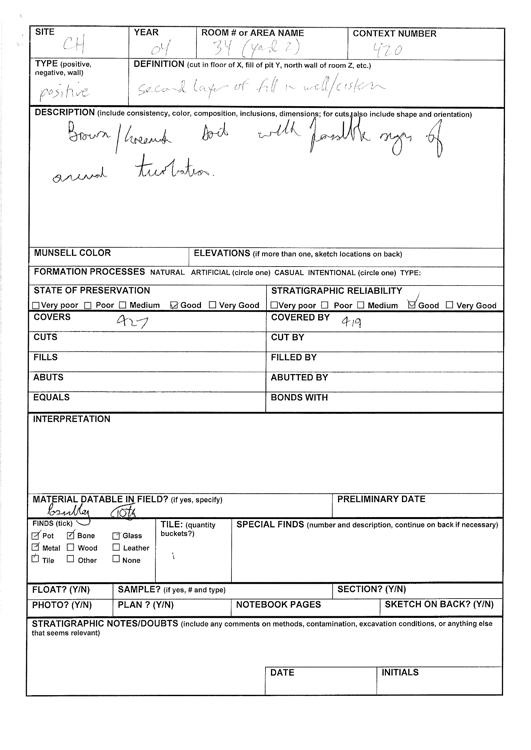 SITE YEAR ROOM # or AREA NAME CONTEXT NUMBER
CH 04 34 (yard 2) 420
TYPE (positive, DEFINITION (cut in floor of X, fill of pit Y, north wall of room Z, etc.)
negative, wall)
positive second layer of fill in well/cistern
DESCRIPTION (include consistency, color, composition, inclusions, dimensions; for cuts, also include shape and orientation)
Brown/ soil with possible signs of
animal turbation.
MUNSELL COLOR ELEVATIONS (if more than one, sketch locations on back)
FORMATION PROCESSES NATURAL ARTIFICIAL (circle one) CASUAL INTENTIONAL (circle one) TYPE:
STATE OF PRESERVATION STRATIGRAPHIC RELIABILITY
Very poor Poor Medium Good Very Good Very poor Poor Medium Good Very Good
COVERS 427 COVERED BY 419
CUTS CUT BY
FILLS FILLED BY
ABUTS ABUTTED BY
EQUALS BONDS WITH
INTERPRETATION
MATERIAL DATABLE IN FIELD? (if yes, specify) PRELIMINARY DATE
FINDS (tick) TILE: (quantity SPECIAL FINDS (number and description, continue on back if necessary)
Pot Bone Glass buckets?)
Metal Wood Leather
Tile Other None
FLOAT? (Y/N) SAMPLE? (if yes, # and type) SECTION? (Y/N)
PHOTO? (Y/N) PLAN ? (Y/N) NOTEBOOK PAGES SKETCH ON BACK? (Y/N)
STRATIGRAPHIC NOTES/DOUBTS (include any comments on methods, contamination, excavation conditions, or anything else
that seems relevant)
DATE INITIALS